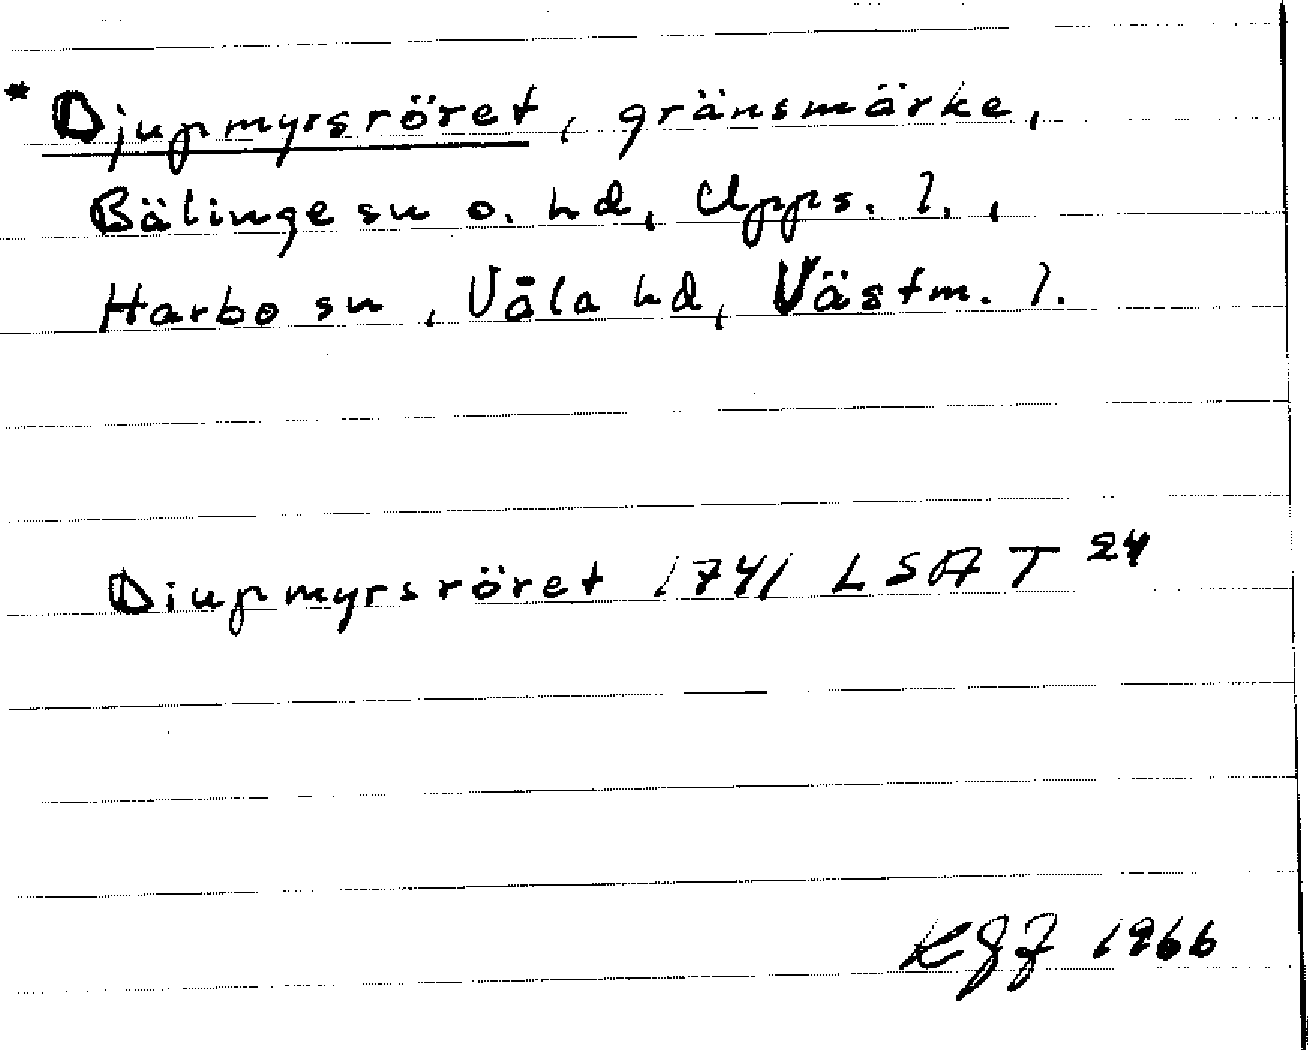 * Djupmyrsröret, gränsmärke,
Bälinge sn o. hd, Upps. l.,
Harbo sn, Våla hd, Västm. l.
Diupmyrsröret 1741 LSA T 24
KGF 1966